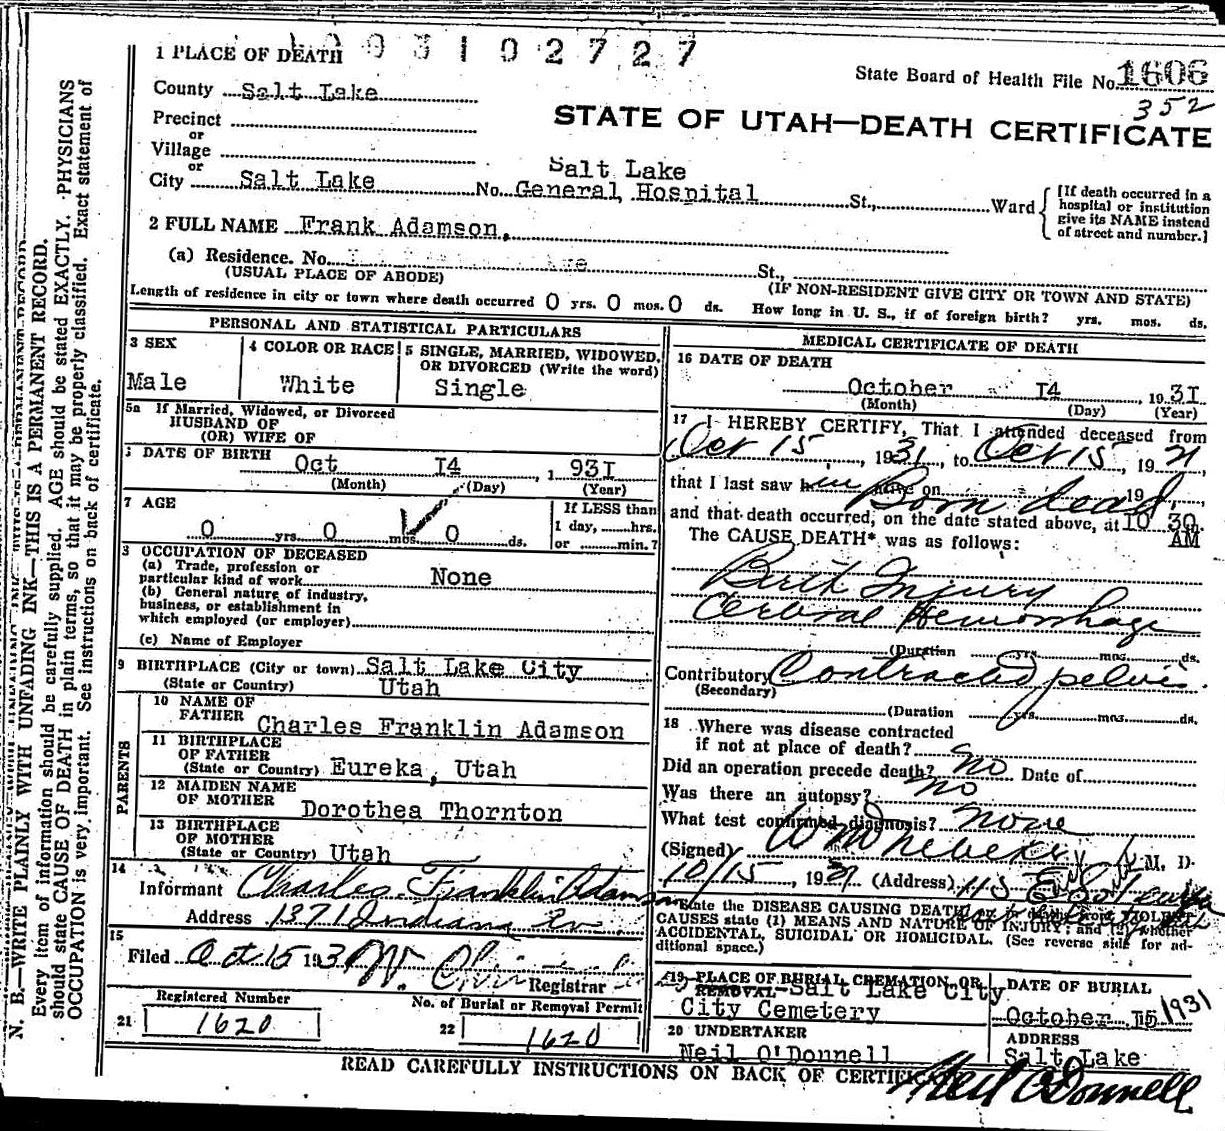 1 PLACE OF DEATH 93102727
State Board of Health File No. 1606
352
County Salt Lake
STATE OF UTAH—DEATH CERTIFICATE
Precinct
or
Village
or
City Salt Lake No. Salt Lake General Hospital St., Ward
[If death occurred in a hospital or institution give its NAME instead of street and number.]
2 FULL NAME Frank Adamson,
(a) Residence. No. Ave St.,
(USUAL PLACE OF ABODE) (IF NON-RESIDENT GIVE CITY OR TOWN AND STATE)
Length of residence in city or town where death occurred 0 yrs. 0 mos. 0 ds. How long in U. S., if of foreign birth? yrs. mos. ds.
PERSONAL AND STATISTICAL PARTICULARS
3 SEX
Male
4 COLOR OR RACE
White
5 SINGLE, MARRIED, WIDOWED, OR DIVORCED (Write the word)
Single
5a If Married, Widowed, or Divorced
HUSBAND OF
(OR) WIFE OF
DATE OF BIRTH Oct I4, 1 93I
(Month) (Day) (Year)
7 AGE
0 yrs. 0 mos. 0 ds.
If LESS than
1 day, hrs.
or min.?
8 OCCUPATION OF DECEASED
(a) Trade, profession or
particular kind of work None
(b) General nature of industry,
business, or establishment in
which employed (or employer)
(c) Name of Employer
9 BIRTHPLACE (City or town) Salt Lake City
(State or Country) Utah
PARENTS
10 NAME OF
FATHER Charles Franklin Adamson
11 BIRTHPLACE
OF FATHER
(State or Country) Eureka, Utah
12 MAIDEN NAME
OF MOTHER Dorothea Thornton
13 BIRTHPLACE
OF MOTHER
(State or Country) Utah
14
Informant Charles Franklin Adamson
Address 1371 Indiana Av
15
Filed Oct 15 193 Registrar
Registered Number
21 1620
No. of Burial or Removal Permit
22 1620
MEDICAL CERTIFICATE OF DEATH
16 DATE OF DEATH
October I4 19 3I
(Month) (Day) (Year)
17 I HEREBY CERTIFY, That I attended deceased from
Oct 15, 1931, to Oct 15, 19
that I last saw h alive on Born dead, 19
and that death occurred, on the date stated above, at 10 30 AM
The CAUSE DEATH* was as follows:
Birth Injury
Cerebral Hemorrhage
(Duration yrs. mos. ds.
Contributory Contracted pelvis.
(Secondary)
(Duration yrs. mos. ds.
18 Where was disease contracted
if not at place of death?
Did an operation precede death? no Date of
Was there an autopsy? no
What test confirmed diagnosis? none
(Signed) M. D.
10/15, 19 (Address)
*State the DISEASE CAUSING DEATH, or in deaths from VIOLENT
CAUSES state (1) MEANS AND NATURE OF INJURY; and (2) whether
ACCIDENTAL, SUICIDAL OR HOMICIDAL. (See reverse side for additional space.)
19 PLACE OF BURIAL CREMATION, OR
REMOVAL Salt Lake City
City Cemetery
DATE OF BURIAL
October 15 1931
20 UNDERTAKER
Neil O'Donnell
ADDRESS
Salt Lake
READ CAREFULLY INSTRUCTIONS ON BACK OF CERTIFICATE
Neil O'Donnell
N. B.—WRITE PLAINLY WITH UNFADING INK—THIS IS A PERMANENT RECORD.
Every item of information should be carefully supplied. AGE should be stated EXACTLY. PHYSICIANS
should state CAUSE OF DEATH in plain terms, so that it may be properly classified. Exact statement of
OCCUPATION is very important. See instructions on back of certificate.